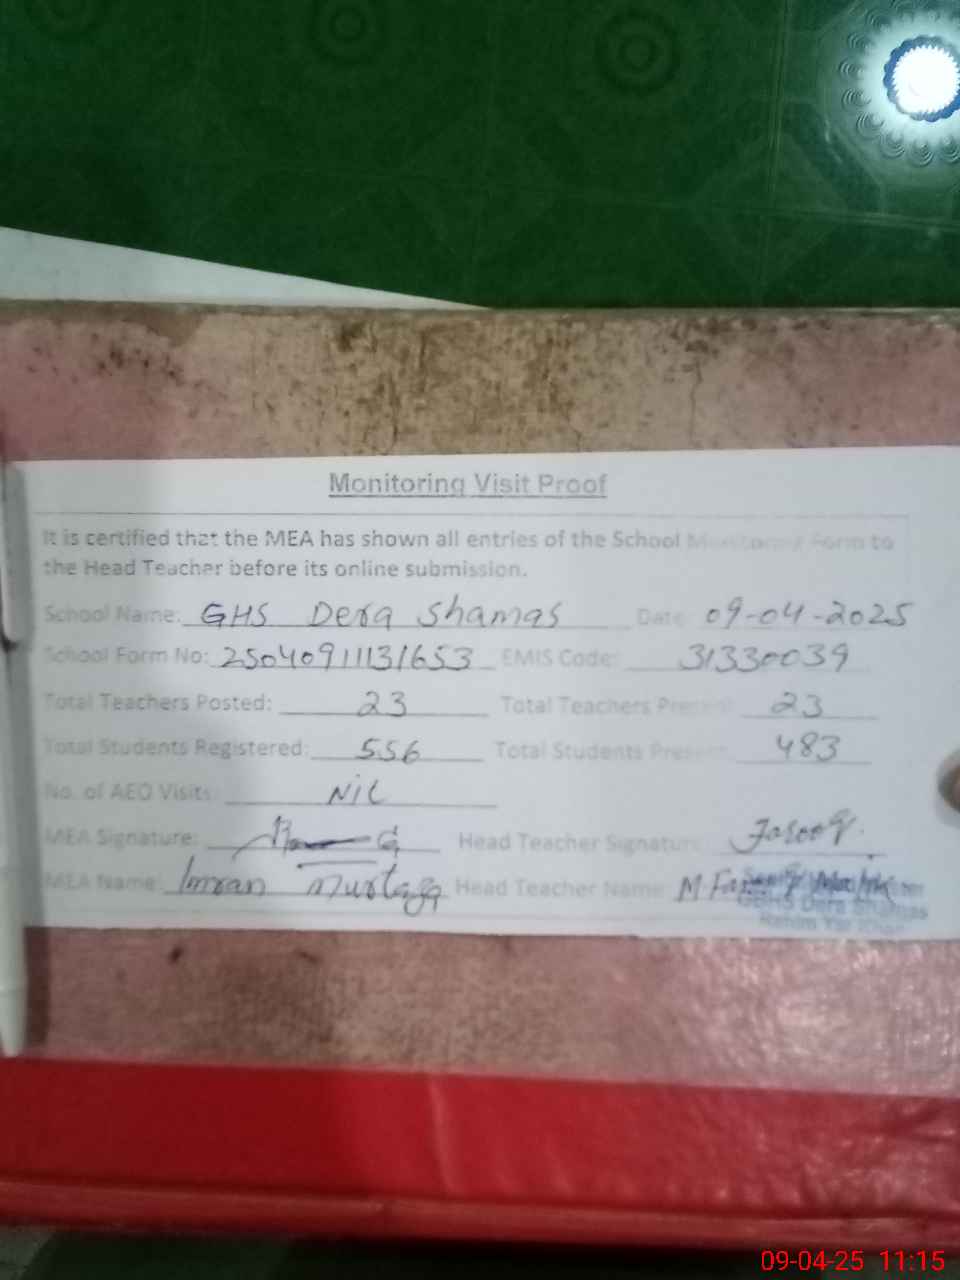 Monitoring Visit Proof
It is certified that the MEA has shown all entries of the School Monitoring Form to
the Head Teacher before its online submission.
School Name: GHS Dera Shamas Date: 09-04-2025
School Form No: 25040911131653 EMIS Code: 31330039
Total Teachers Posted: 23 Total Teachers Present: 23
Total Students Registered: 556 Total Students Present: 483
No. of AEO Visits: Nil
MEA Signature: Head Teacher Signature: Farooq.
MEA Name: Imran Murtaza Head Teacher Name: M Farooq
GBHS Dera Shamas
Rahim Yar Khan
09-04-25 11:15